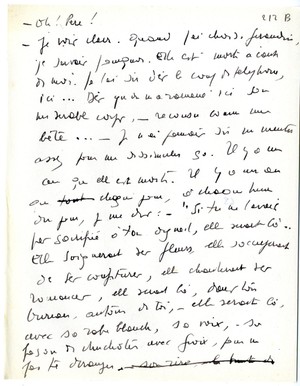 - Oh! Père! 212 B
- Je vois clair. Quand j'ai choisi
je savais pourquoi. Elle est morte à cause
de moi. Je l'ai su dès le coup de téléphone,
ici ... Dès qu'on m'a ramené ici son
misérable corps, - reconnu comme une
bête ... - Je n'ai jamais su me mentir
assez pour me dissimuler ça. Il y a un
an qu'elle est morte. Il y a un an
chaque jour, à chaque heure
du jour, je me dis: - "Si tu ne l'avais
pas sacrifiée à ton orgueil, elle serait là ..
Elle soignerait ses fleurs, elle s'occuperait
de ses confitures, elle chanterait ses
romances, elle serait là, dans ton
bureau, autour de toi, - elle serait là,
avec sa robe blanche, sa voix, - sa
façon de chuchoter avec toi, pour ne
pas te déranger